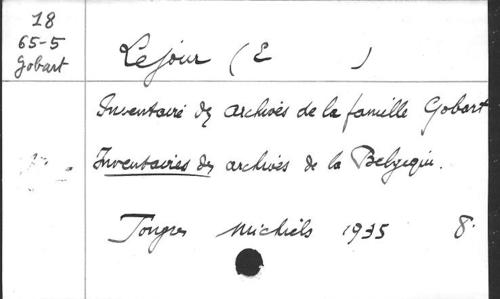 18
65-5
Gobart
Lejour (E )
Inventaire des archives de la famille Gobart
Inventaires des archives de la Belgique.
Tongres Michiels 1935 8°